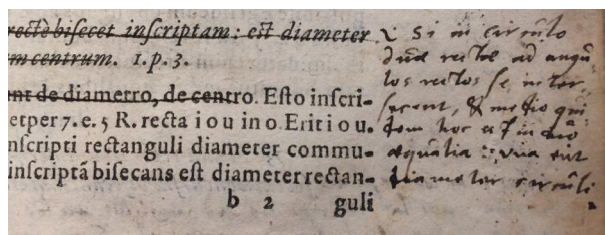 rectè bisecet inscriptam: est diameter
m centrum. 1. p. 3.
nt de diametro, de centro. Esto inscri-
et per 7. e. 5 R. recta i o u in o. Erit i o u.
nscripti rectanguli diameter commu-
inscriptā bisecans est diameter rectan-
b 2 guli
Si in circulo
duæ rectæ ad angu
los rectos se inter
secent, & medio qui
dem hoc est in
æqualia : una erit
diameter circuli.